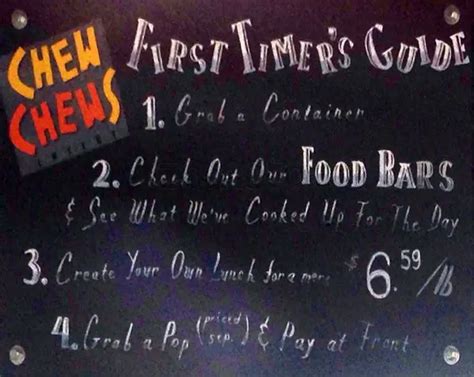 CHEW
CHEWS
First Timer's Guide
1. Grab a Container
2. Check Out Our FOOD BARS
& See What We've Cooked Up For The Day
3. Create Your Own Lunch for a mere $6.59/lb
4. Grab a Pop (priced sep.) & Pay at Front